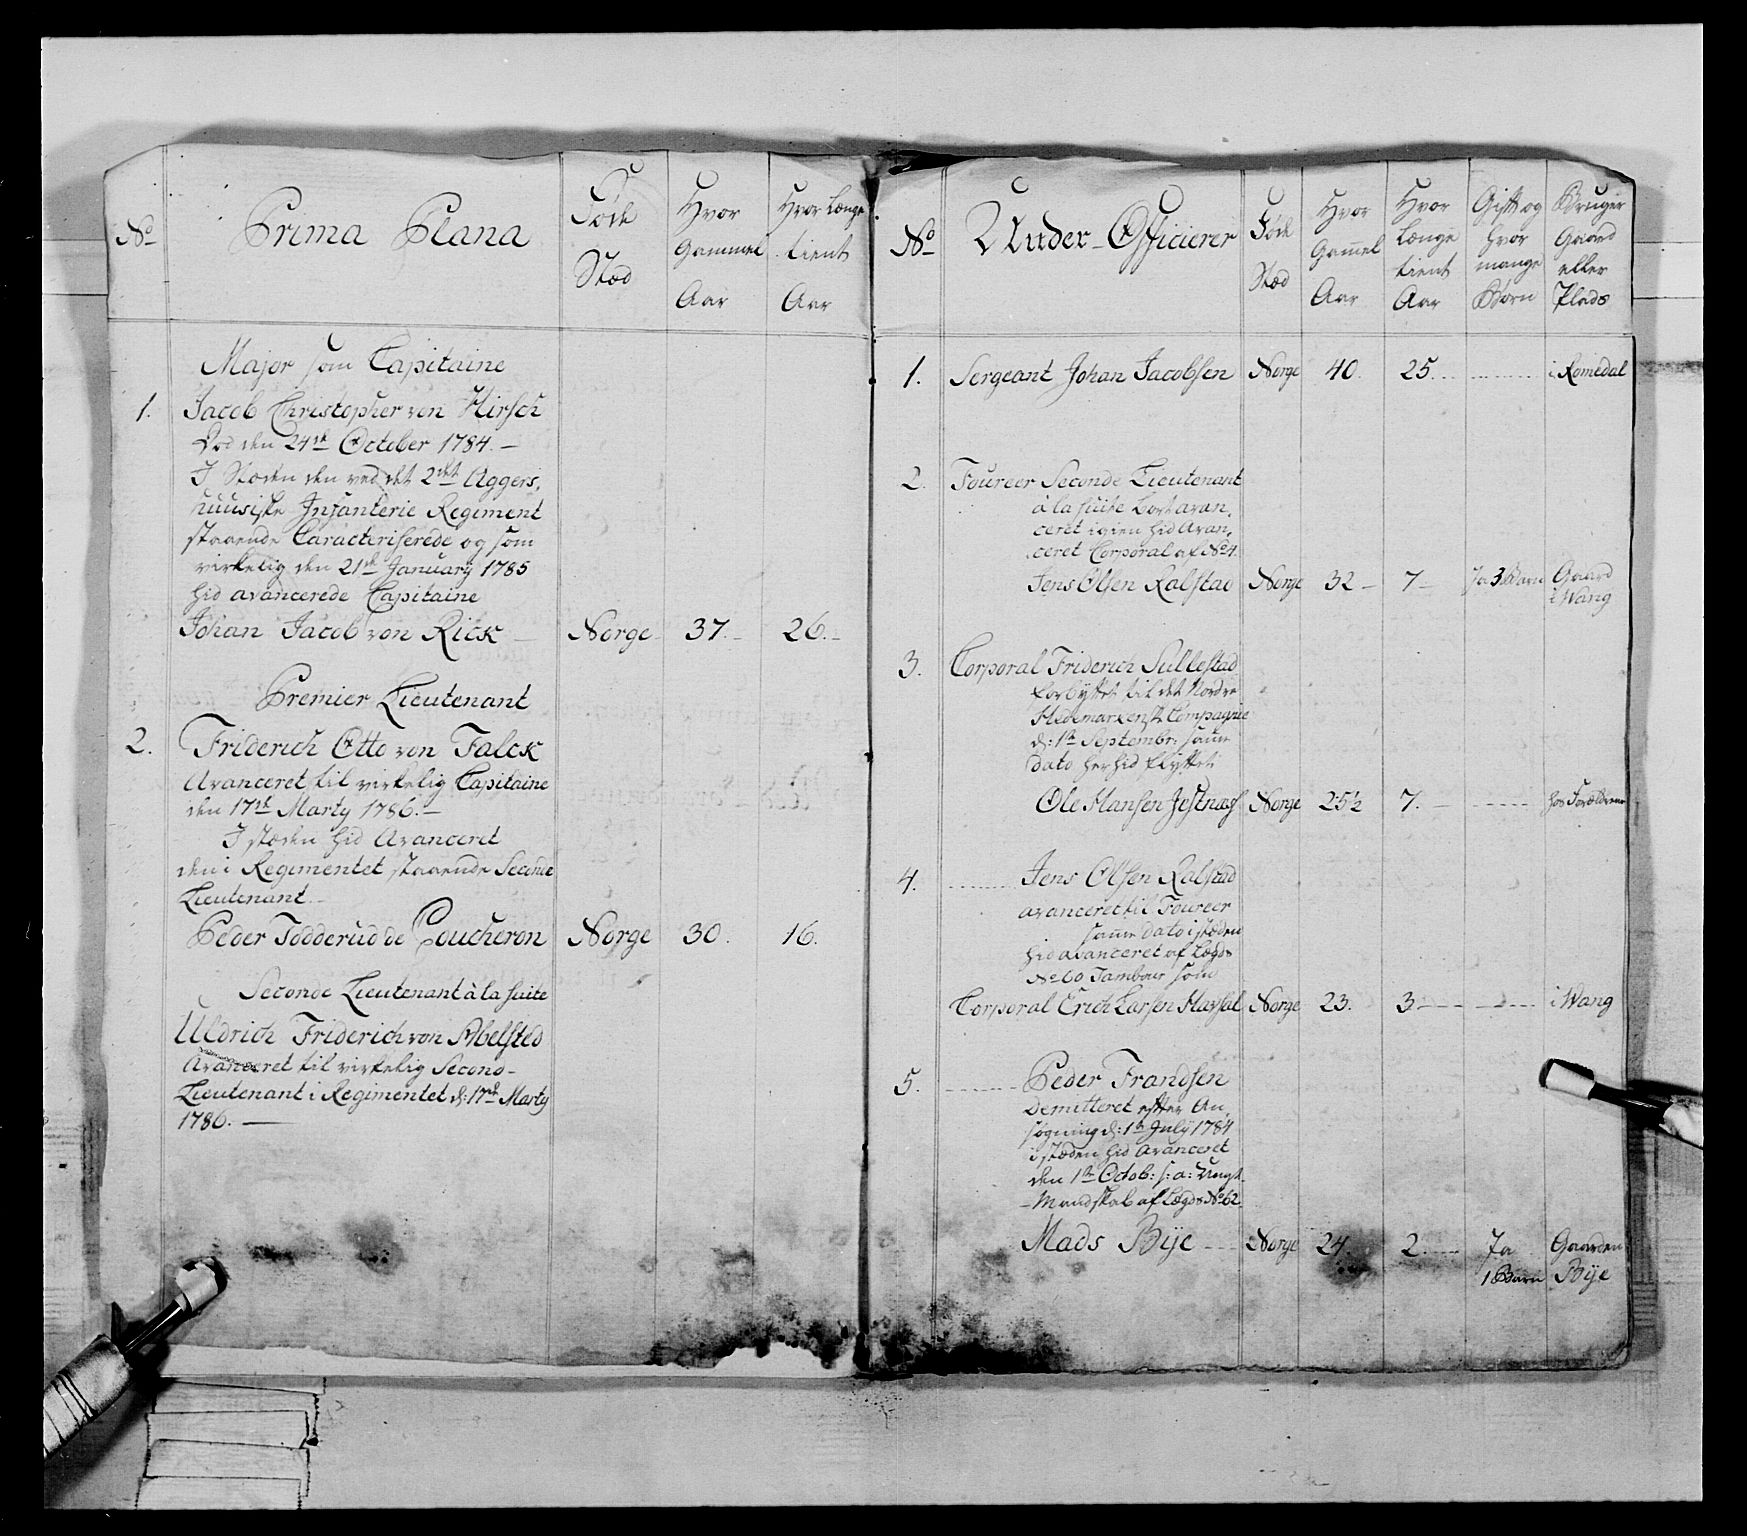 No
Prima Plana
Føde
Stæd
Hvor
Gammel
Aar
Hvor Længe
tient
Aar
Major som Capitaine
1. Jacob Christopher von Hirsch
Død den 24de October 1784. —
I Stæden den ved det 2det Aggers,
huusiske Infanterie Regiment
staaende Caracteriserede og som
virkelig den 21de January 1785
hid avancerede Capitaine
Johan Jacob von Rick — Norge 37. — 26. —
Premier Lieutenant
2. Friderich Otto von Falck
Avanceret til virkelig Capitaine
den 17de Marty 1786. —
I stæden hid Avanceret
den i Regimentet staaende Seconde
Lieutenant
Peder Todderud de Coucheron Norge 30. 16.
Seconde Lieutenant à la suite
Uldrich Friderich von Abelsted
Avanceret til virkelig Second-
Lieutenant i Regimentet d: 17de Marty
1786. —
No
Under-Officierer
Føde
Stæd
Hvor
Gamel
Aar
Hvor
Længe
tient
Aar
Gift og
hvor
mange
Børn
Bruger
Gaard
eller
Plads
1. Sergeant Johan Jacobsen Norge 40. 25. i Romedal
2. Foureer Seconde Lieutenant
à la suite bort avan,
ceret igien hid Avan,
ceret Corporal af No 4.
Jens Olsen Ralstad Norge 32 — 7 — Ja 3 Børn Gaard
i Wang
3. Corporal Friderich Sullestad
forbyttet til det Nordre
Hedemarkenske Compagnie
d: 1te Septembr: samme
dato herhid flyttet
Ole Hansen Jestnæs Norge 25½ 7. hos Forældrene
4. Jens Olsen Ralstad
avanceret til Foureer
samme dato i stæden
hid avanceret af Lægds
No 60 Tambour som
Corporal Erich Larsen Norge 23. 3 — i Wang
5. Peder Frandsen
Demitteret efter An,
søgning d: 1te July 1784
i stæden hid Avanceret
den 1te Octob: s: a: Ungt
Mandskab af Lægds No 62
Mads Bye Norge 24. 2. Ja Gaarden
1 Barn Bye